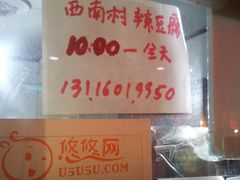 西南村 辣豆腐
10:00—全天
13116019950
悠悠网
U5USU.COM